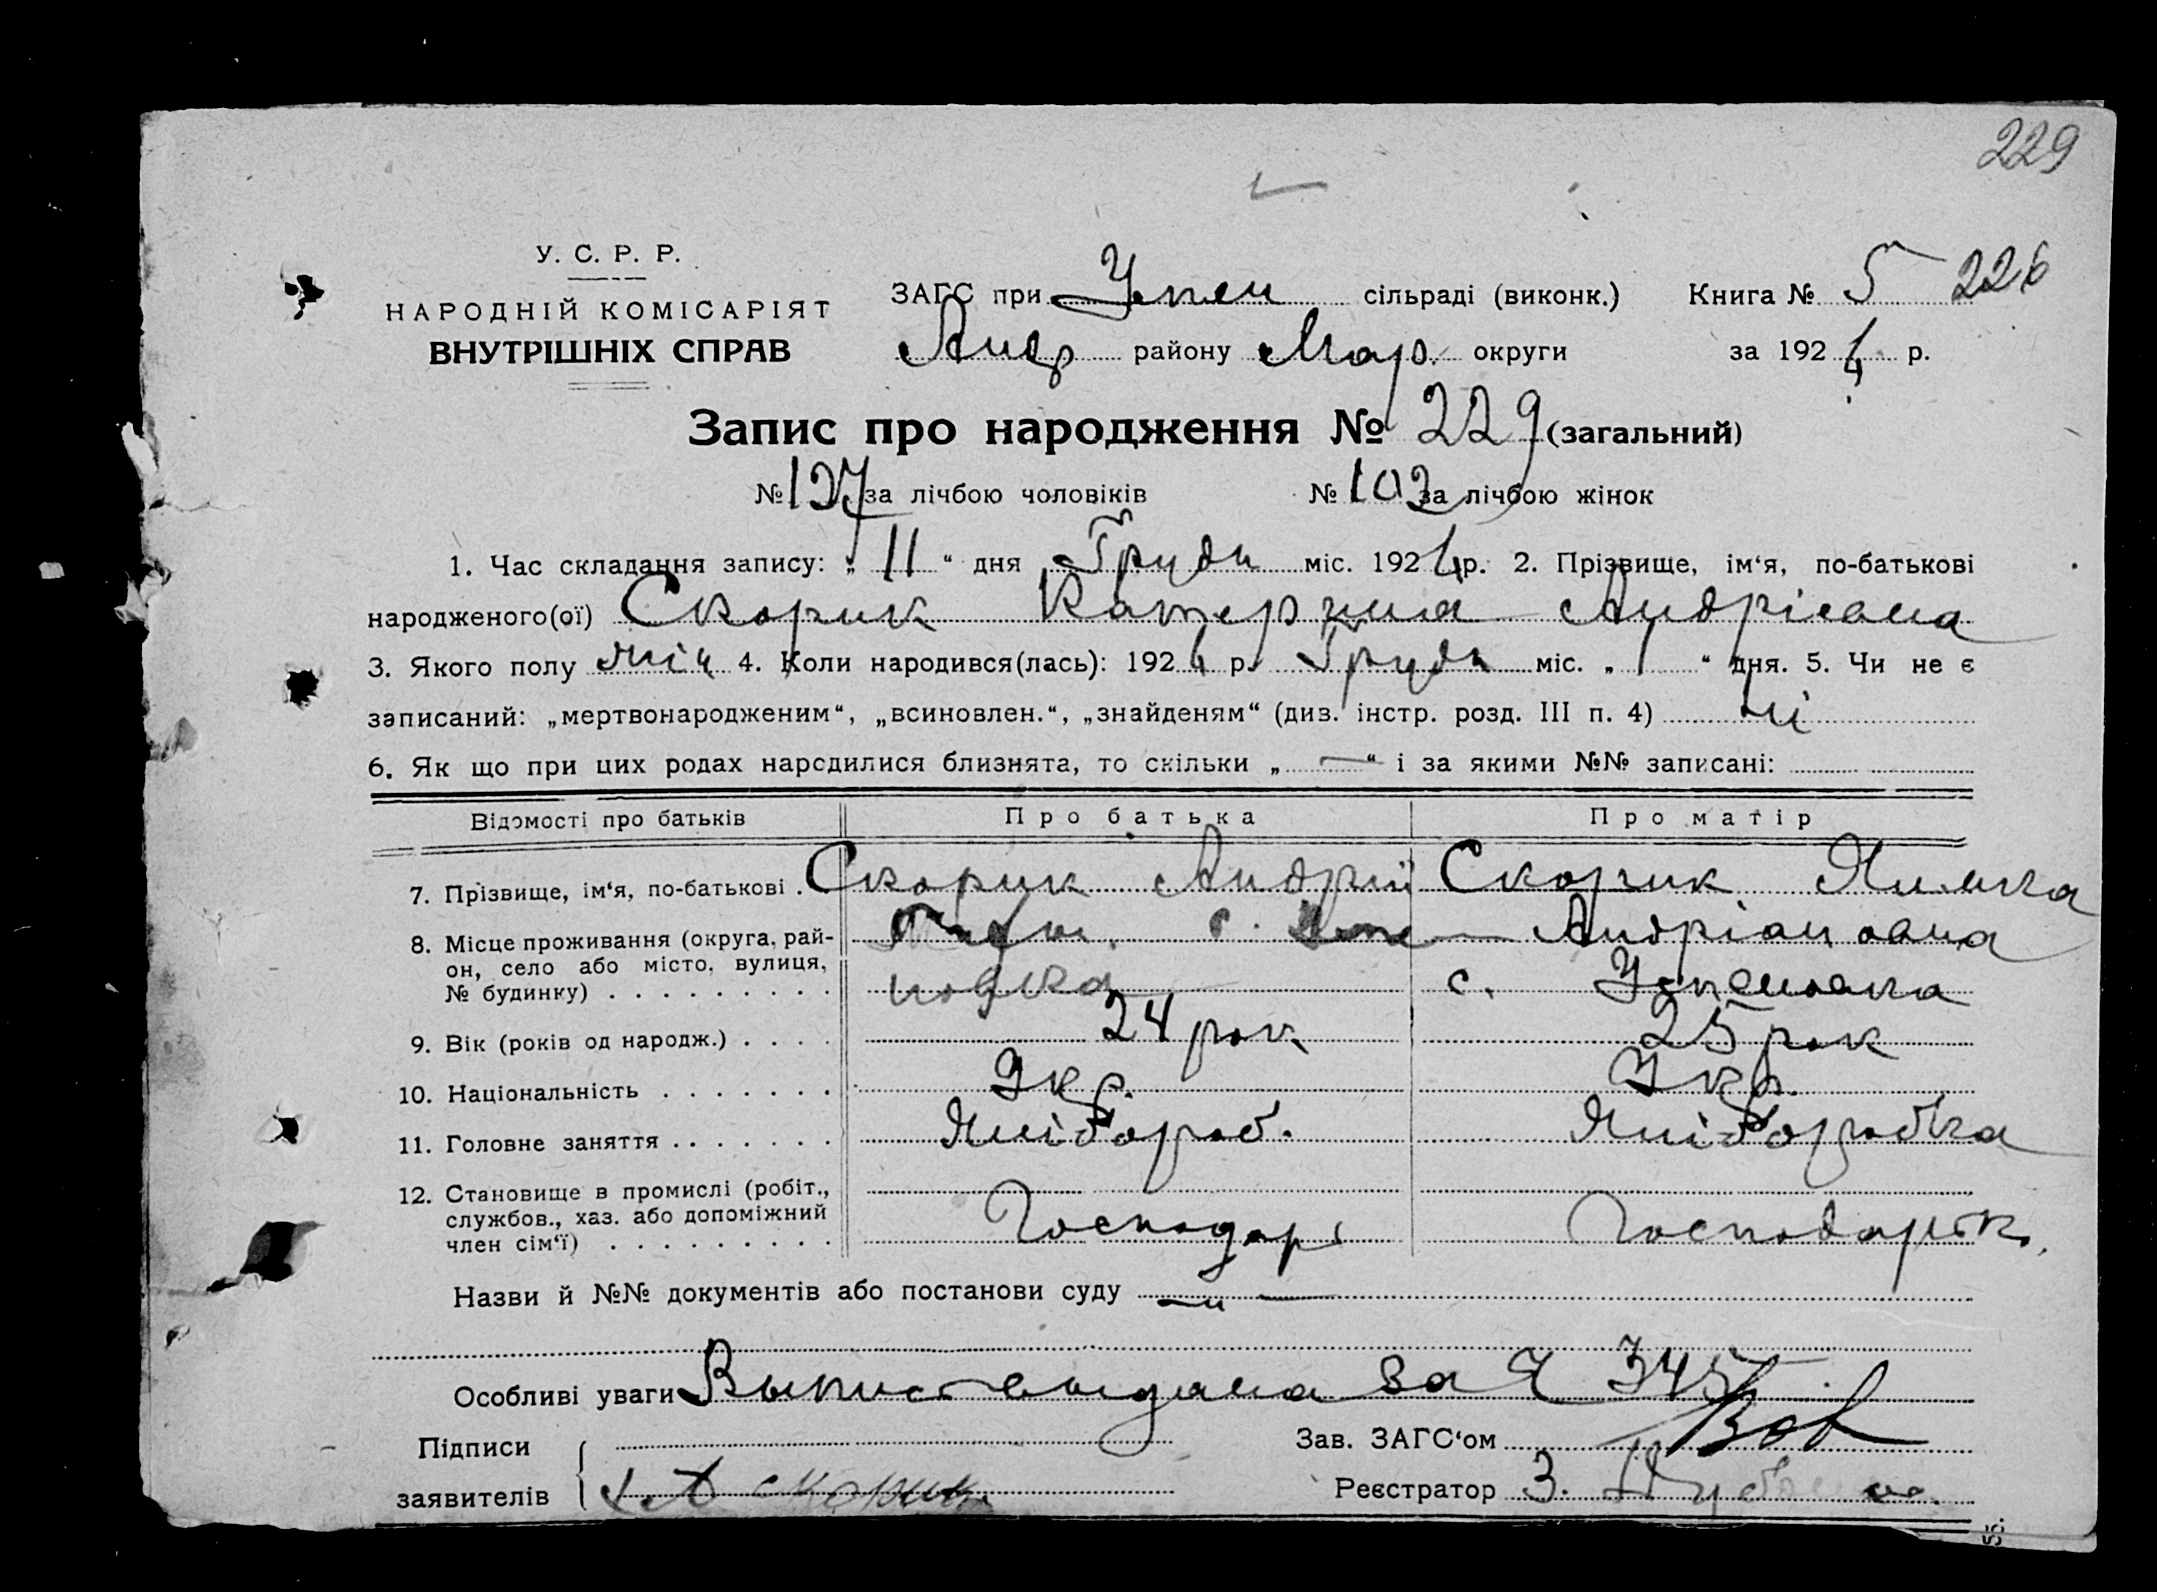 229
У. С. Р. Р.
НАРОДНІЙ КОМІСАРІЯТ
ВНУТРІШНІХ СПРАВ
ЗАГС при Успен сільраді (виконк.) Книга № 5 226
Андр району Мар. округи за 192 4 р.
Запис про народження № 229 (загальний)
№ 127 за лічбою чоловіків № 102 за лічбою жінок
1. Час складання запису: „ 11 “ дня Грудн міс. 192 4 р. 2. Прізвище, ім‘я, по-батькові
народженого(ої) Скорик Катерина Андріевна
3. Якого полу жіч 4. Коли народився(лась): 192 4 р. Грудн міс. „ 1 “ дня. 5. Чи не є
записаний: „мертвонародженим“, „всиновлен.“, „знайденям“ (див. інстр. розд. III п. 4) ні
6. Як що при цих родах народилися близнята, то скільки „ — “ і за якими №№ записані:
Відомості про батьків Про батька Про матір
7. Прізвище, ім‘я, по-батькові . Скорик Андрій Скорик Якилка
8. Місце проживання (округа, рай- с. Успе Андріановна
он, село або місто, вулиця,
№ будинку) . . . . . . . . . новка с. Успеновка
9. Вік (років од народж.) . . . . 24 рок 25 рок
10. Національність . . . . . . . Укр. Укр.
11. Головне заняття . . . . . . . Хліборoб. Хліборобка
12. Становище в промислі (робіт.,
службов., хаз. або допоміжний
член сім‘ї) . . . . . . . . . Господарь Господарьк.
Назви й №№ документів або постанови суду — " —
Особливі уваги Выпись выдана за № 345
Підписи Зав. ЗАГС‘ом
заявителів А Скорик Реєстратор З.